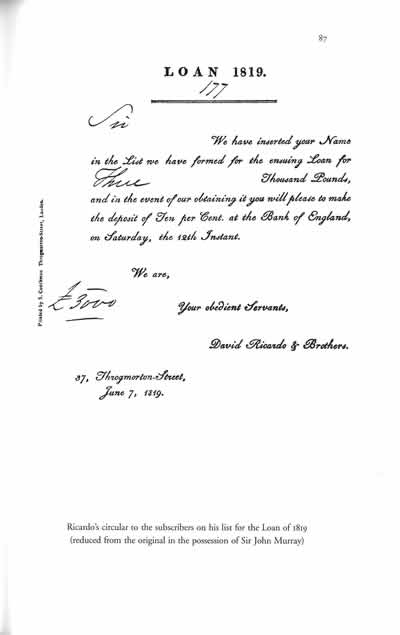 87
LOAN 1819.
177
Sir
We have inserted your Name
in the List we have formed for the ensuing Loan for
Three Thousand Pounds,
and in the event of our obtaining it you will please to make
the deposit of Ten per Cent. at the Bank of England,
on Saturday, the 12th Instant.
We are,
£3000
Your obedient Servants,
David Ricardo & Brothers.
37, Throgmorton-Street,
June 7, 1819.
Printed by S. Couchman Throgmorton-street, London.
Ricardo's circular to the subscribers on his list for the Loan of 1819
(reduced from the original in the possession of Sir John Murray)